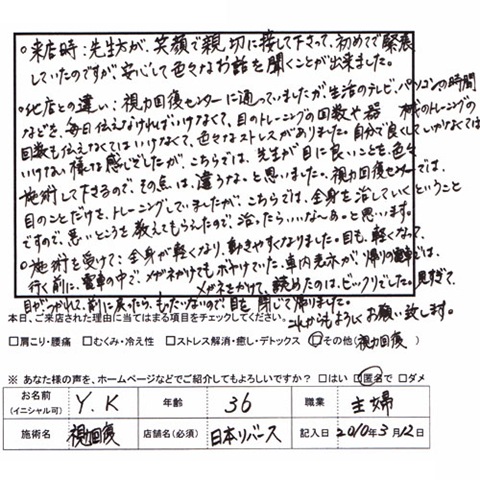 ○来店時：先生方が、笑顔で親切に接して下さって、初めてで緊張
していたのですが安心して色々なお話を聞くことが出来ました。
○他店との違い：視力回復センターに通っていましたが生活のテレビ、パソコンの時間
などを、毎日伝えなければいけなくて、目のトレーニングの回数や器 械のトレーニングの
回数も伝えなくてはいけなくて、色々なストレスがありました。自分で良くしていかなくては
いけない様な感じでしたが、こちらでは、先生が目に良いことを、色々
施術して下さるので、その点は、違うな。と思いました。視力回復センターでは、
目のことだけを、トレーニングしていましたが、こちらでは、全身を治していくということ
ですので、悪いところを教えてもらえたので、治ったらいいな〜。と思います。
○施術を受けて：全身が軽くなり、動きやすくなりました。目も、軽くなって、
行く前に、電車の中で、メガネかけてもボヤけていた、車内広告が、帰りの電車では、
メガネをかけて、読めたのは、ビックリでした。見すぎて、
目がつかれて、前に戻ったら、もったいないので目を閉じて帰りました。
これからもよろしくお願い致します。
本日、ご来店された理由に当てはまる項目をチェックしてください。
□肩こり・腰痛 □むくみ・冷え性 □ストレス解消・癒し・デトックス □その他(視力回復)
※ あなた様の声を、ホームページなどでご紹介してもよろしいですか？ □はい □匿名で □ダメ
お名前 (イニシャル可) Y.K 年齢 36 職業 主婦
施術名 視力回復 店舗名(必須) 日本リバース 記入日 2010年3月12日